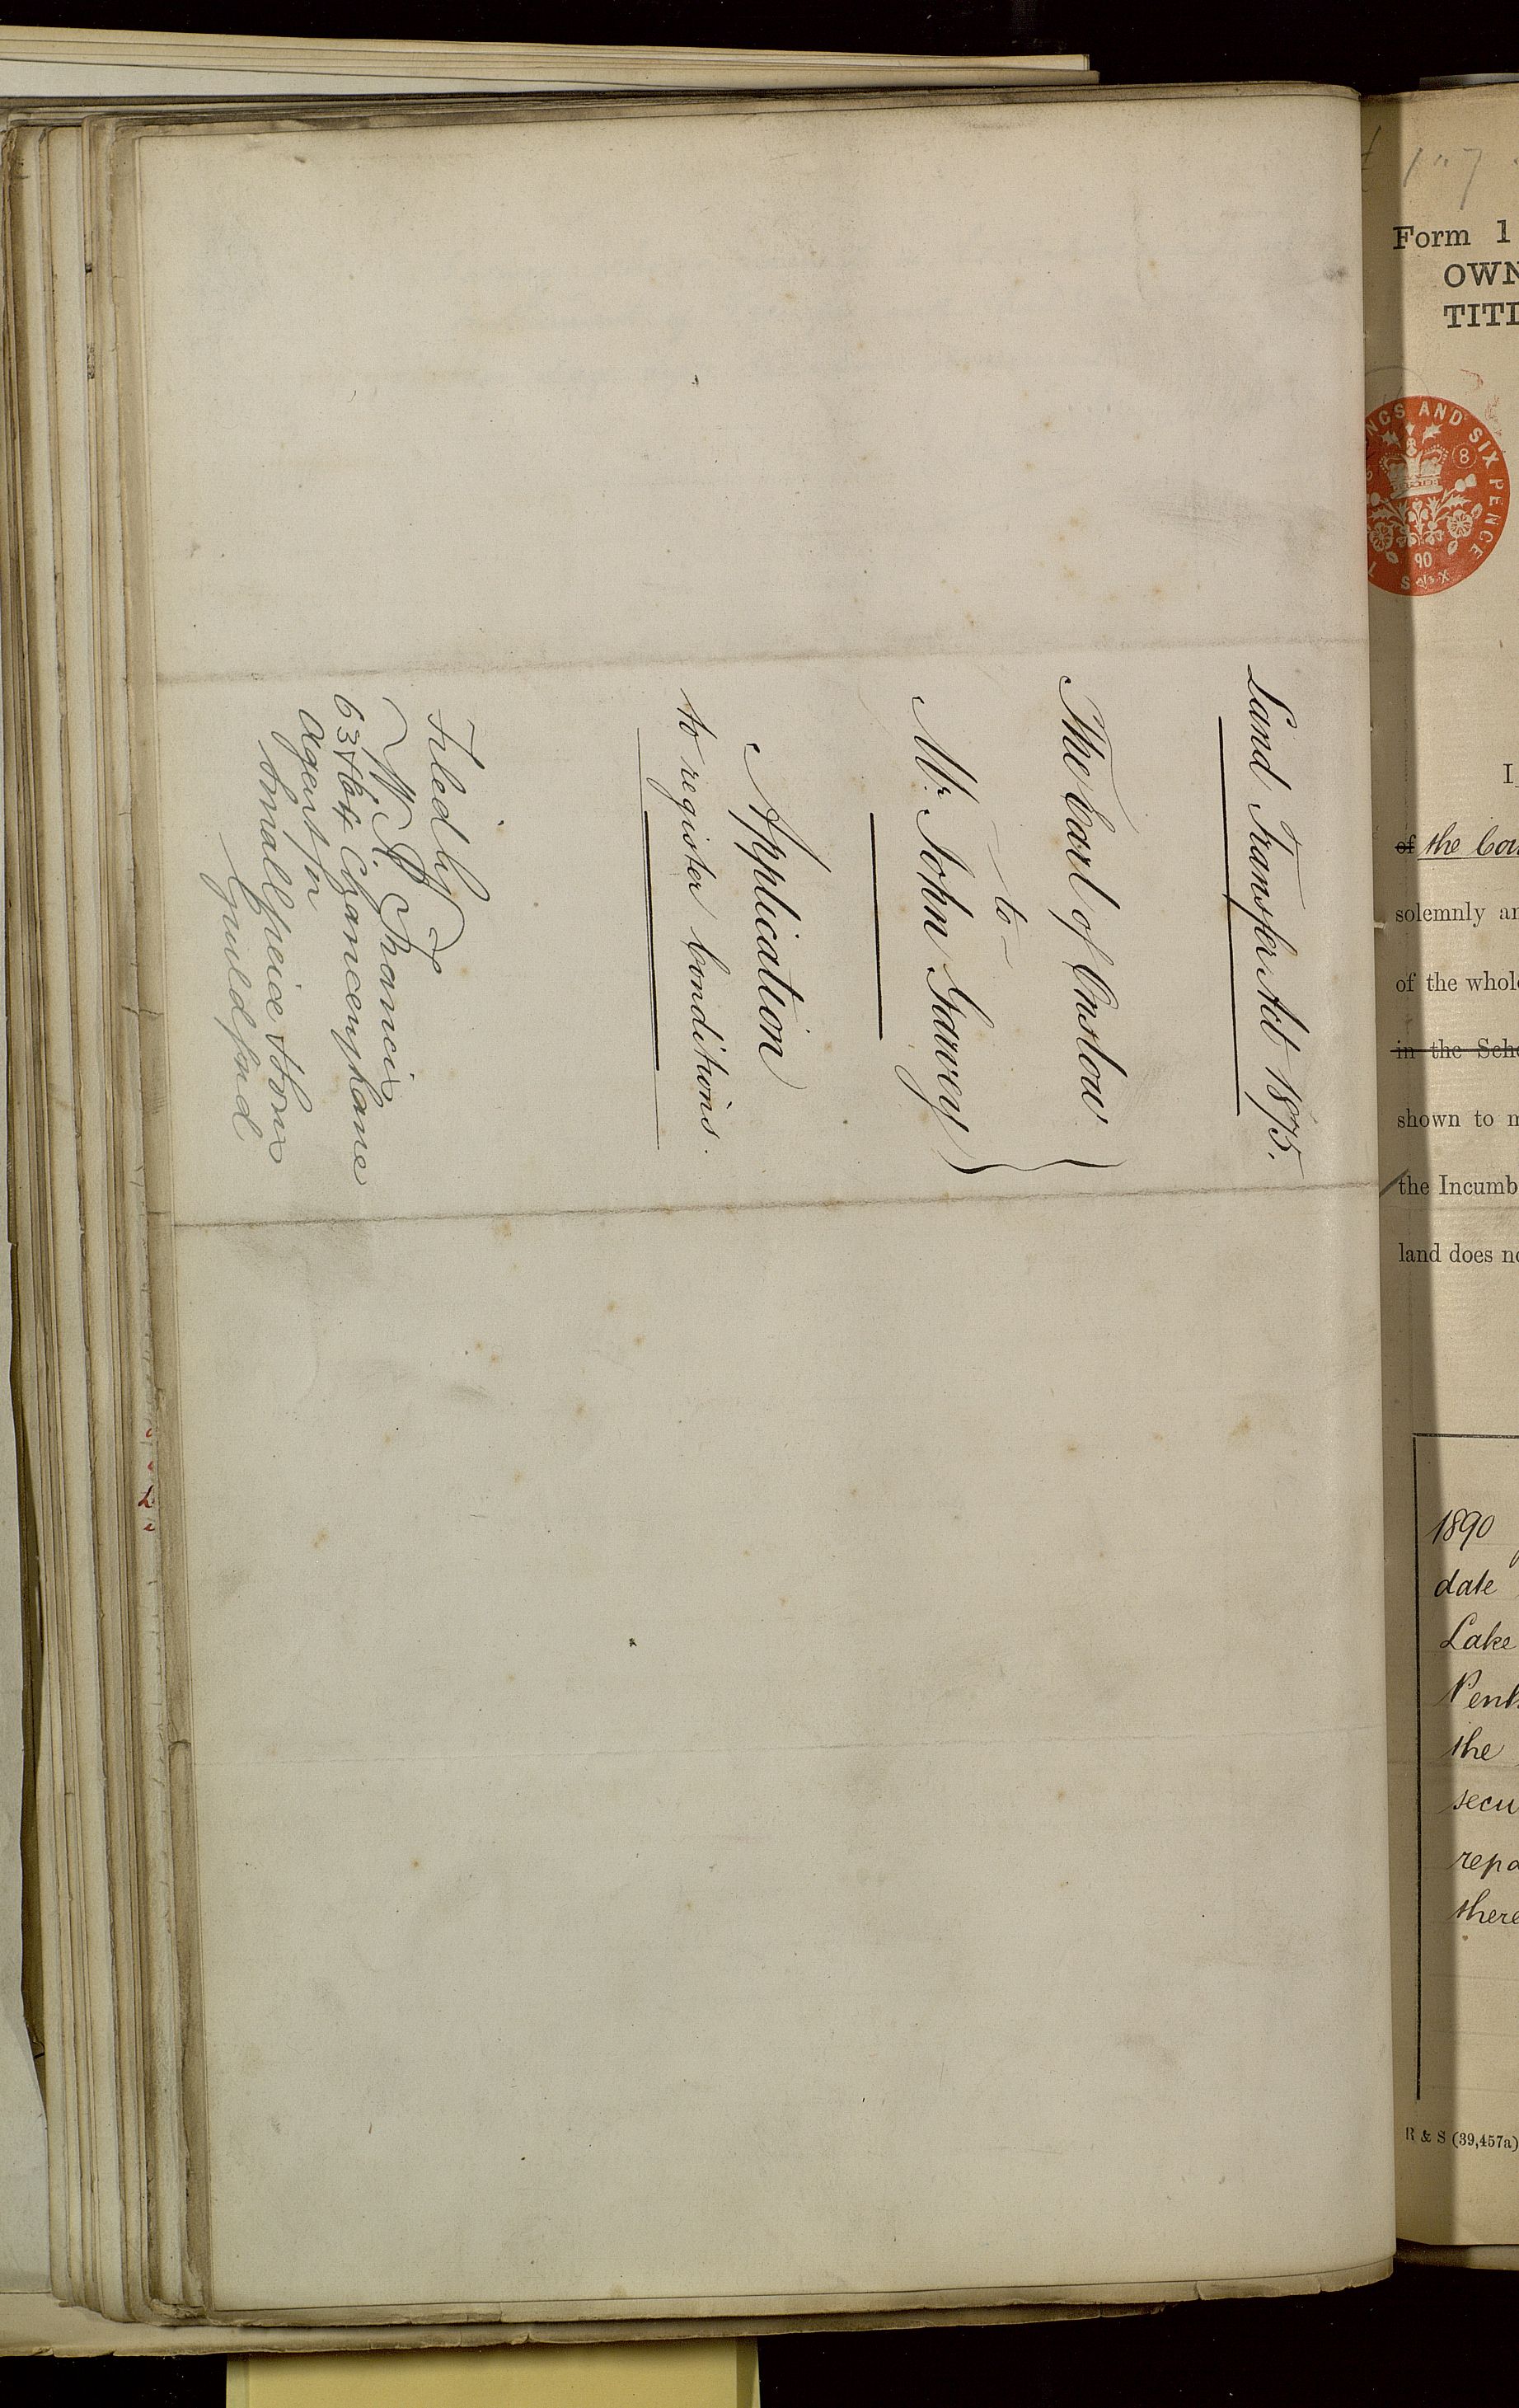 Land Transfer Act 1875.
The Earl of Onslow
- to -
Mr. John Garvey
Application
to register Conditions.
Filed by
W. F. Francis
63 & 64 Chancery Lane
Agent for
Smallpeice & Sons
Guildford
Form 1
OWN
TITL
NGS AND SIX PENCE
8
90
I,
of the Cou
solemnly an
of the whole
in the Sche
shown to m
the Incumb
land does no
1890
date
Lake
the
secu
repa
there
R & S (39,457a)